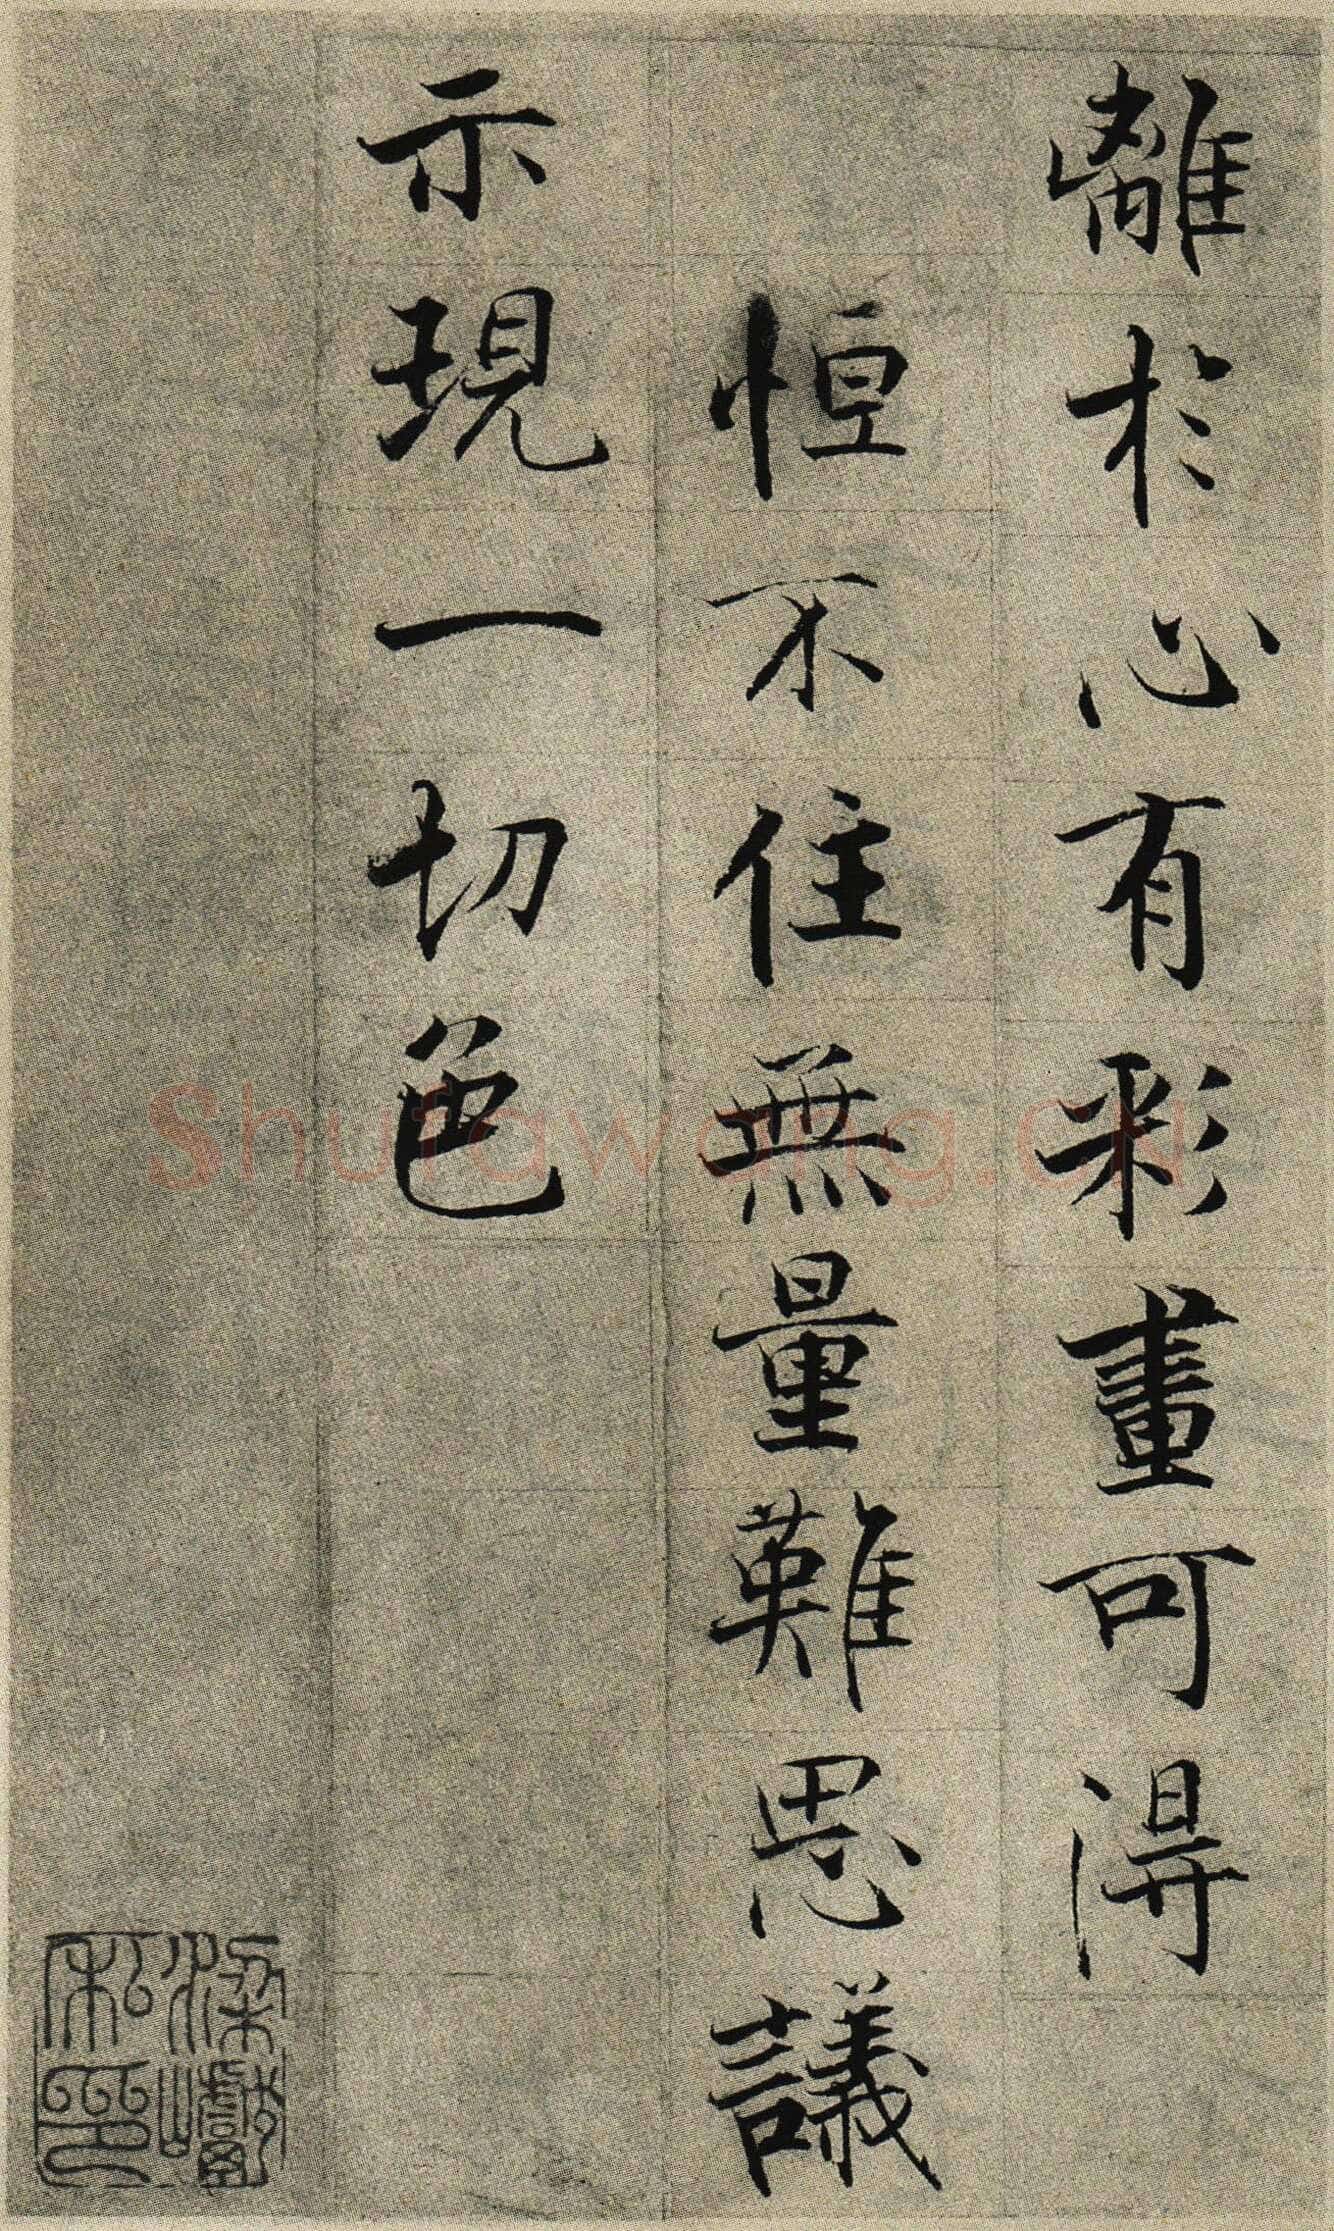 離於心有彩畫可得
恒不住無量難思議
示現一切色
梁巘
私印
Shufawang.CN